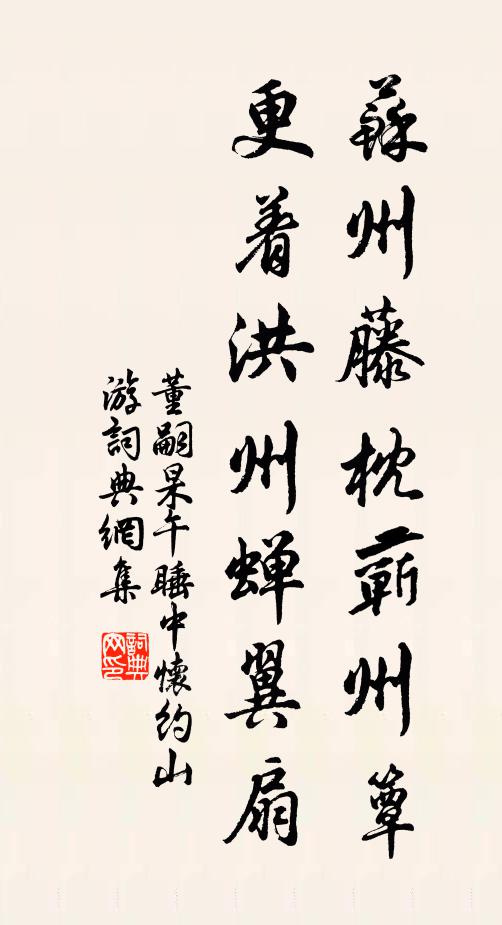 蘇州藤枕蘄州簟
更着洪州蝉翼扇
董嗣杲午睡中懷約山
游詞典網集
詞典网印